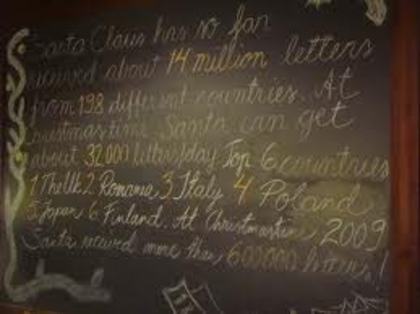 Santa Claus has so far
received about 14 million letters
from 198 different countries. At
Christmastime Santa can get
about 32000 letters/day Top 6 countries
1 The Uk 2 Romania 3 Italy 4 Poland
5 Japan 6 Finland. At Christmastime 2009
Santa received more than 600000 letters!